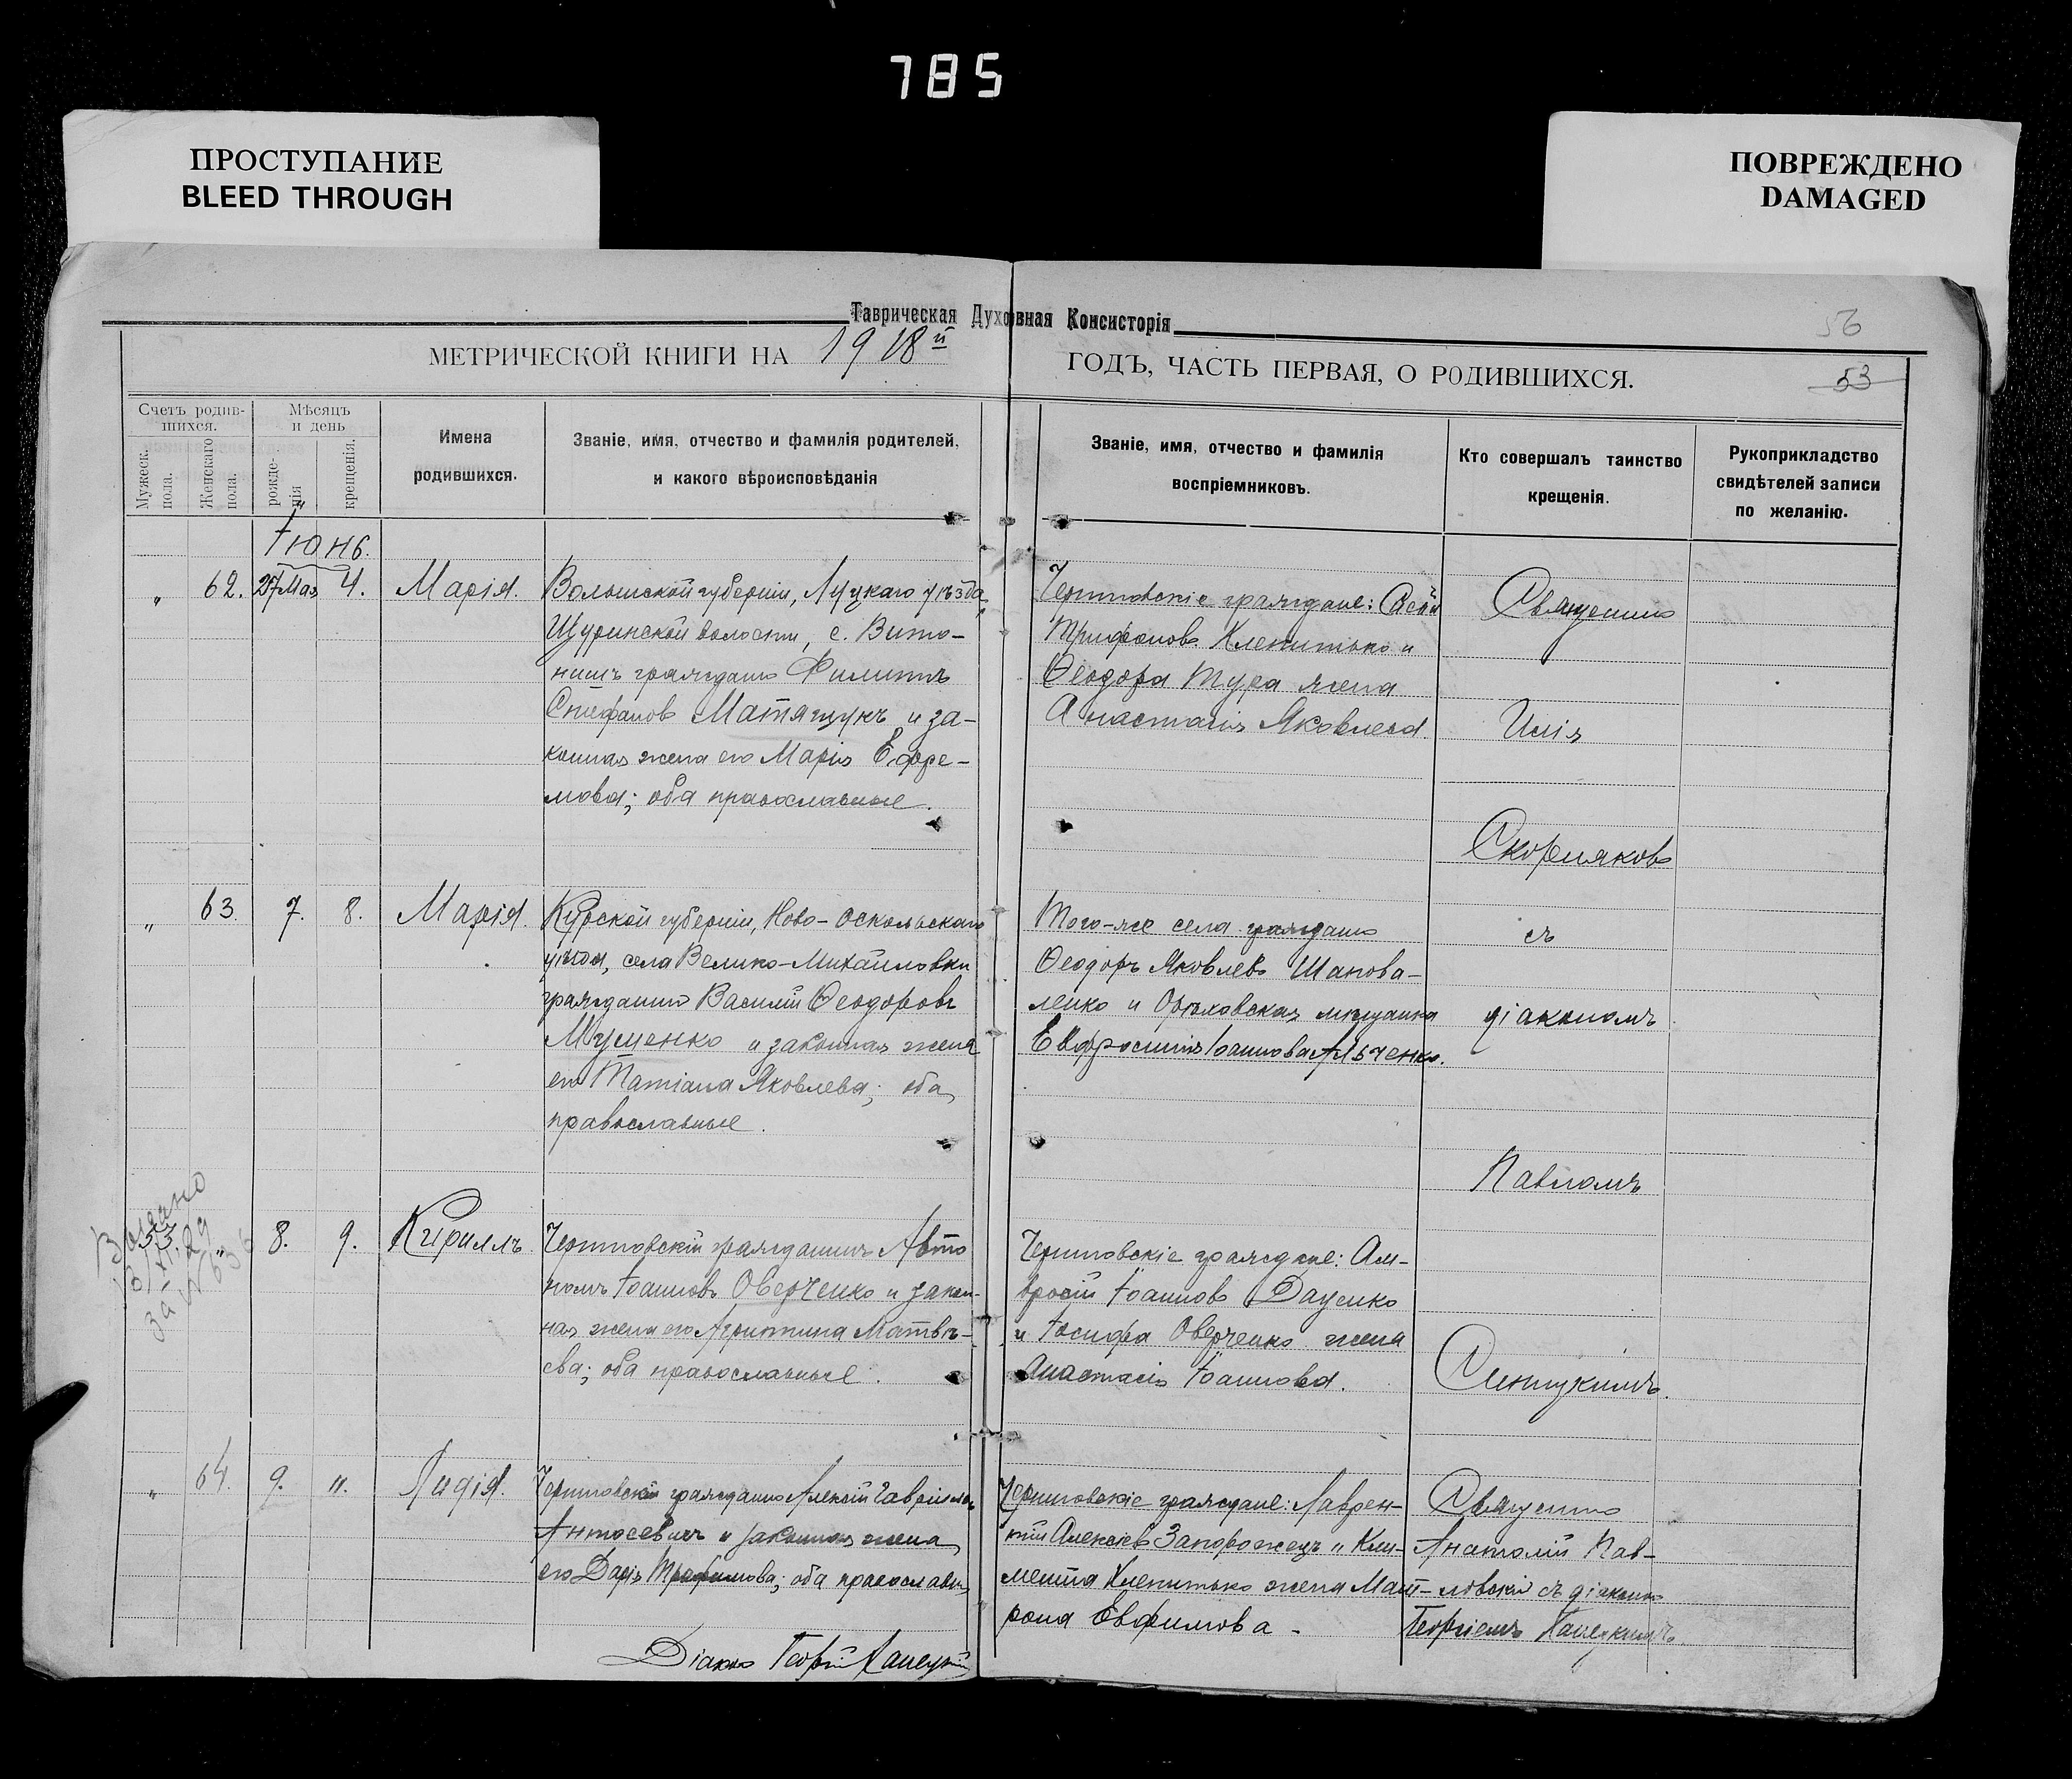 785
ПРОСТУПАНИЕ
BLEED THROUGH
ПОВРЕЖДЕНО
DAMAGED
Таврическая Духовная Консисторія
56
МЕТРИЧЕСКОЙ КНИГИ НА 1918й ГОДЪ, ЧАСТЬ ПЕРВАЯ, О РОДИВШИХСЯ.
53
Счетъ родив-
шихся.
Мужеск.
пола.
Женскаго
пола.
Мѣсяцъ
и день
рожде-
нія
крещенія.
Имена
родившихся.
Званіе, имя, отчество и фамилія родителей,
и какого вѣроисповѣданія
Званіе, имя, отчество и фамилія
воспріемниковъ.
Кто совершалъ таинство
крещенія.
Рукоприкладство
свидѣтелей записи
по желанію.
Іюнь.
„ 62. 27 Мая 4. Марія.
Волынской губерніи, Луцкаго уѣзда,
Щуринской волости, с. Вито-
нишъ гражданинъ Филиппъ
Стефановъ Матящукъ и за-
конная жена его Марія Ефре-
мова; оба православные.
Черниговскіе граждане:
Трифоновъ Клепитько и
Ѳеодора Тура жена
Анастасія Яковлева.
Священникъ
Илія
Скорняковъ
„ 63. 7. 8. Марія.
Курской губерніи, Ново-Оскольскаго
уѣзда, села Велико-Михайловки
гражданинъ Василій Ѳеодоровъ
Мушенко и законная жена
его Татіана Яковлева; оба
православные.
Того-же села гражданинъ
Ѳеодоръ Яковлевъ Шапова-
ленко и Орѣховская мѣщанка
Евфросинія Іоаннова Ильченко.
съ
діакономъ
Павломъ
Синицкимъ.
33. „ 8. 9. Кириллъ.
Черниговскій гражданинъ Авто
номъ Іоанновъ Оверченко и закон-
ная жена его Агриппина Матвѣ-
ева; оба православные.
Черниговскіе граждане: Ам-
вросій Іоанновъ Даценко
и Іосифа Оверченко жена
Анастасія Іоаннова.
Выдано
за № 636
„ 64. 9. „. Лидія.
Черниговскій гражданинъ Алексій Гавріиловъ
Антосевичъ и законная жена
его Дарія Трофимова; оба православн.
Черниговскіе граждане: Лаврен-
тій Алексіевъ Запорожецъ и Кли-
мента Клепитько жена Мат-
рона Евфимова.
Священникъ
Анатолій Пав-
ловскій съ діакономъ
Георгіемъ
Діаконъ Георгій